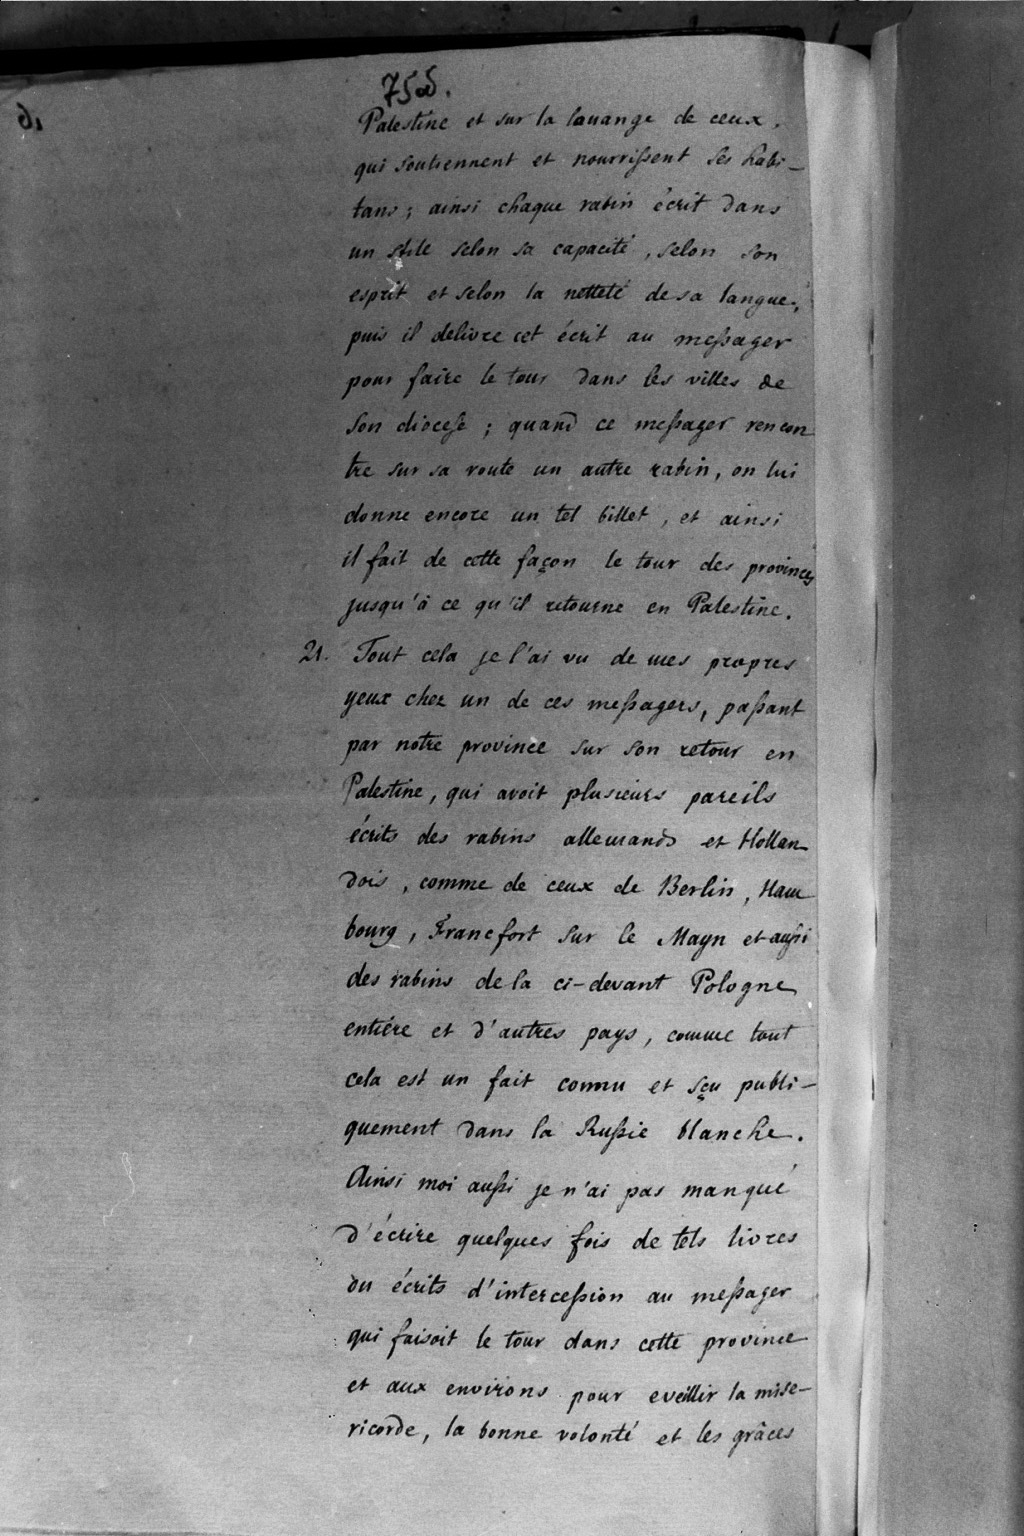 75 об.
Palestine et sur la lauange de ceux,
qui soutiennent et nourrissent ses habi-
tans; ainsi chaque rabin écrit dans
un stile selon sa capacité, selon son
esprit et selon la netteté de sa langue,
puis il delivre cet écrit au messager
pour faire le tour dans les villes de
son diocese; quand ce messager rencon
tre sur sa route un autre rabin, on lui
donne encore un tel billet, et ainsi
il fait de cette façon le tour des provinces
jusqu'à ce qu'il retourne en Palestine.
21. Tout cela je l'ai vu de mes propres
yeux chez un de ces messagers, passant
par notre province sur son retour en
Palestine, qui avoit plusieurs pareils
écrits des rabins allemands et Hollan
dois, comme de ceux de Berlin, Ham
bourg, Francfort sur le Mayn et aussi
des rabins de la ci-devant Pologne
entiére et d'autres pays, comme tout
cela est un fait connu et sçu publi-
quement dans la Russie blanche.
Ainsi moi aussi je n'ai pas manqué
d'écrire quelques fois de tels livres
ou écrits d'intercession au messager
qui faisoit le tour dans cette province
et aux environs pour eveillir la mise-
ricorde, la bonne volonté et les grâces